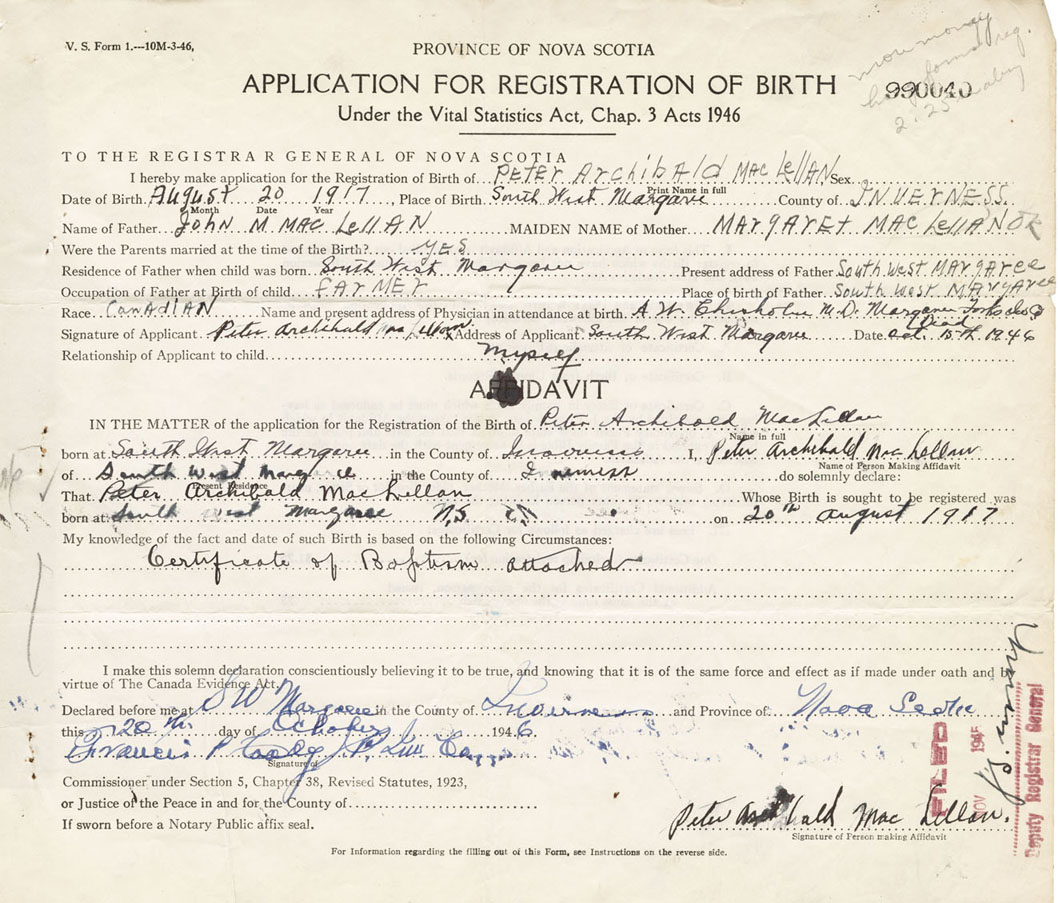 V. S. Form 1.---10M-3-46,
PROVINCE OF NOVA SCOTIA
more money
APPLICATION FOR REGISTRATION OF BIRTH
990040
2.25
Under the Vital Statistics Act, Chap. 3 Acts 1946
TO THE REGISTRAR GENERAL OF NOVA SCOTIA
I hereby make application for the Registration of Birth of PETER ArchibAld MAC LellAN Sex
Print Name in full
Date of Birth August 20 1917, Place of Birth South West Margaree County of INVERNESS.
Month Date Year
Name of Father John M MAC LellAN MAIDEN NAME of Mother MARgAREt MAC LellAN
Were the Parents married at the time of the Birth? YES
Residence of Father when child was born South West Margaree Present address of Father South West MARgARee
Occupation of Father at Birth of child FARMER Place of birth of Father South West MARgARee
Race CANADIAN Name and present address of Physician in attendance at birth A W. Chisholm M.D. Margaree Forks
Dead
Signature of Applicant Peter Archibald MacLellan Address of Applicant South West Margaree Date Oct. 15th 1946
Relationship of Applicant to child Myself
AFFIDAVIT
IN THE MATTER of the application for the Registration of the Birth of Peter Archibald MacLellan
Name in full
born at South West Margaree in the County of Inverness I, Peter Archibald MacLellan
Name of Person Making Affidavit
of South West Margaree in the County of Inverness do solemnly declare:
Present Residence
That Peter Archibald MacLellan Whose Birth is sought to be registered was
born at South West Margaree N.S. on 20th August 1917
My knowledge of the fact and date of such Birth is based on the following Circumstances:
Certificate of Baptism attached
I make this solemn declaration conscientiously believing it to be true, and knowing that it is of the same force and effect as if made under oath and by
virtue of The Canada Evidence Act.
Declared before me at S W Margaree in the County of Inverness and Province of Nova Scotia
this 20th day of October 1946
Francis P
Signature of
Commissioner under Section 5, Chapter 38, Revised Statutes, 1923,
or Justice of the Peace in and for the County of
If sworn before a Notary Public affix seal.
Peter Archibald Mac Lellan.
Signature of Person making Affidavit
FILED
NOV
Deputy Registrar General
For Information regarding the filling out of this Form, see Instructions on the reverse side.